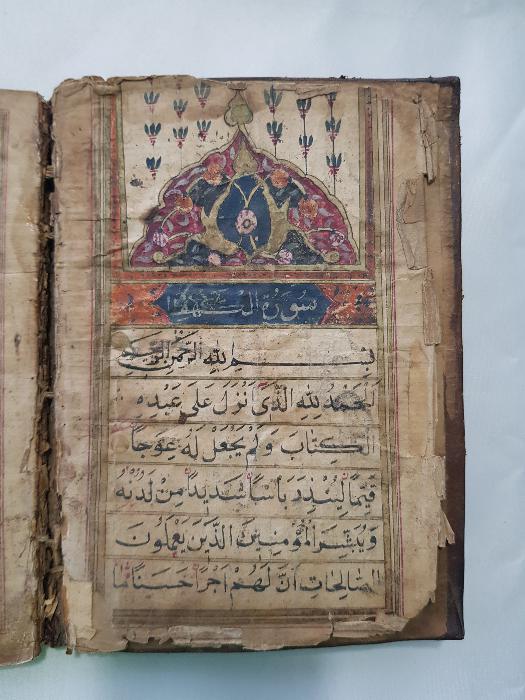 سورة الكهف
بِسْمِ اللهِ الرَّحْمٰنِ الرَّحِيمِ
اَلْحَمْدُ لِلّٰهِ الَّذِى اَنْزَلَ عَلَى عَبْدِهِ
الْكِتَابَ وَلَمْ يَجْعَلْ لَهُ عِوَجًا
قَيِّمًا لِيُنْذِرَ بَأْسًا شَدِيدًا مِنْ لَدُنْهُ
وَيُبَشِّرَ الْمُؤْمِنِينَ الَّذِينَ يَعْمَلُونَ
الصَّالِحَاتِ اَنَّ لَهُمْ اَجْرًا حَسَنًا مَا